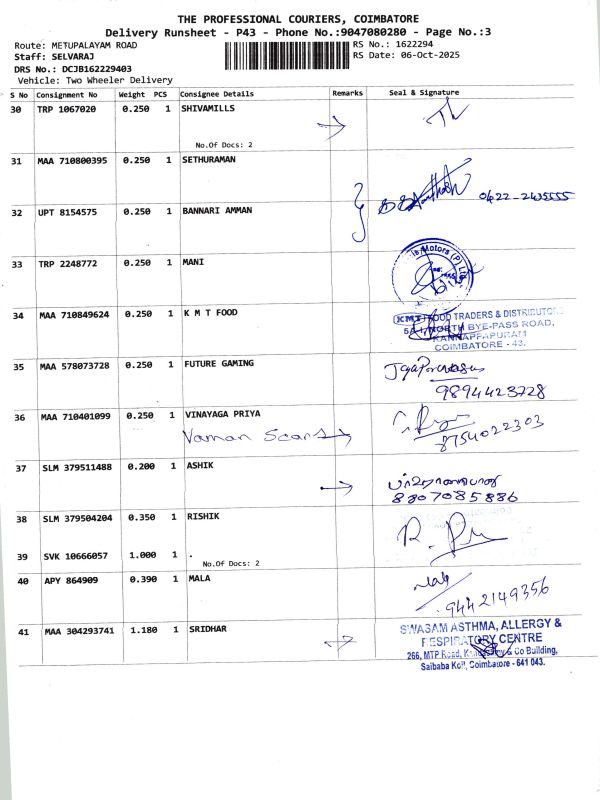 THE PROFESSIONAL COURIERS, COIMBATORE
Delivery Runsheet - P43 - Phone No.:9047080280 - Page No.:3
Route: METUPALAYAM ROAD RS No.: 1622294
Staff: SELVARAJ RS Date: 06-Oct-2025
DRS No.: DCJB162229403
Vehicle: Two Wheeler Delivery
S No Consignment No Weight PCS Consignee Details Remarks Seal & Signature
30 TRP 1067020 0.250 1 SHIVAMILLS
No.Of Docs: 2
31 MAA 710800395 0.250 1 SETHURAMAN
0422-2435555
32 UPT 8154575 0.250 1 BANNARI AMMAN
33 TRP 2248772 0.250 1 MANI
Motors (P) Ltd
34 MAA 710849624 0.250 1 K M T FOOD
KMT FOOD TRADERS & DISTRIBUTORS
NORTH BYE-PASS ROAD,
KANNAPPAPURAM
COIMBATORE - 43.
35 MAA 578073728 0.250 1 FUTURE GAMING
9894423728
36 MAA 710401099 0.250 1 VINAYAGA PRIYA
Vaman Scans
8754022303
37 SLM 379511488 0.200 1 ASHIK
8807085886
38 SLM 379504204 0.350 1 RISHIK
39 SVK 10666057 1.000 1 .
No.Of Docs: 2
40 APY 864909 0.390 1 MALA
9442149356
41 MAA 304293741 1.180 1 SRIDHAR
SWASAM ASTHMA, ALLERGY &
RESPIRATORY CENTRE
266, MTP Road, & Co Building,
Saibaba Koil, Coimbatore - 641 043.